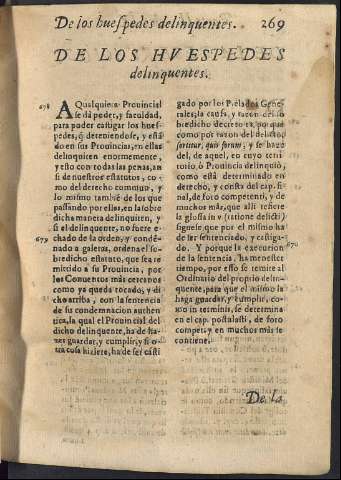 De los huespedes delinquentes. 269
DE LOS HVESPEDES
delinquentes.
678
A Qualquiera Prouincial
se dá poder, y facultad,
para poder castigar los hues-
pedes, q̃ deteniendose, y está-
do en sus Prouincias, en ellas
delinquieren enormemente,
y esto con todas las penas, an-
si de nuestros estatutos, co-
mo del derecho commun, y
lo mismo tambiẽ de los que
passando por ellas, en lo sobre
dicha manera delinquieren, y
si el delinquente, no fuere e-
chado de la orden, y conde-
679
nado a galeras, ordena el so-
bredicho estatuto, que sea re-
mitido a su Prouincia, por
los Conuentos más cercanos
como ya queda tocado, y di-
cho arriba, con la sentencia
de su condemnacion authen-
tica, la qual el Prouincial del
dicho delinquente, ha de ha-
zer guardar, y cumplir, y si o-
tra cosa hiziere, ha de ser casti
gado por los Prelados Gene-
rales, la causa, y razon del so-
bredicho decreto es, porque
como por razon del delicto,
sortitur, quis forum, y se haze
del, de aquel, en cuyo terri-
torio, ò Prouincia delinquió,
como està determinado en
derecho, y consta del cap. si-
nal, de foro competenti, y de
muchos más, que alli refiere
la glossa in v (ratione delicti)
siguese que por el mismo ha
de ser sentenciado, y castiga-
do. Y porque la execucion
670
de la sentencia, ha menester
tiempo, por esso se remite al
Ordinario del proprio delin-
quente, para que el mismo la
haga guardar, y cumplir, co-
mo in terminis, se determina
en el cap. postulasti, de foro
compet. y en muchos más se
contiene.
De la